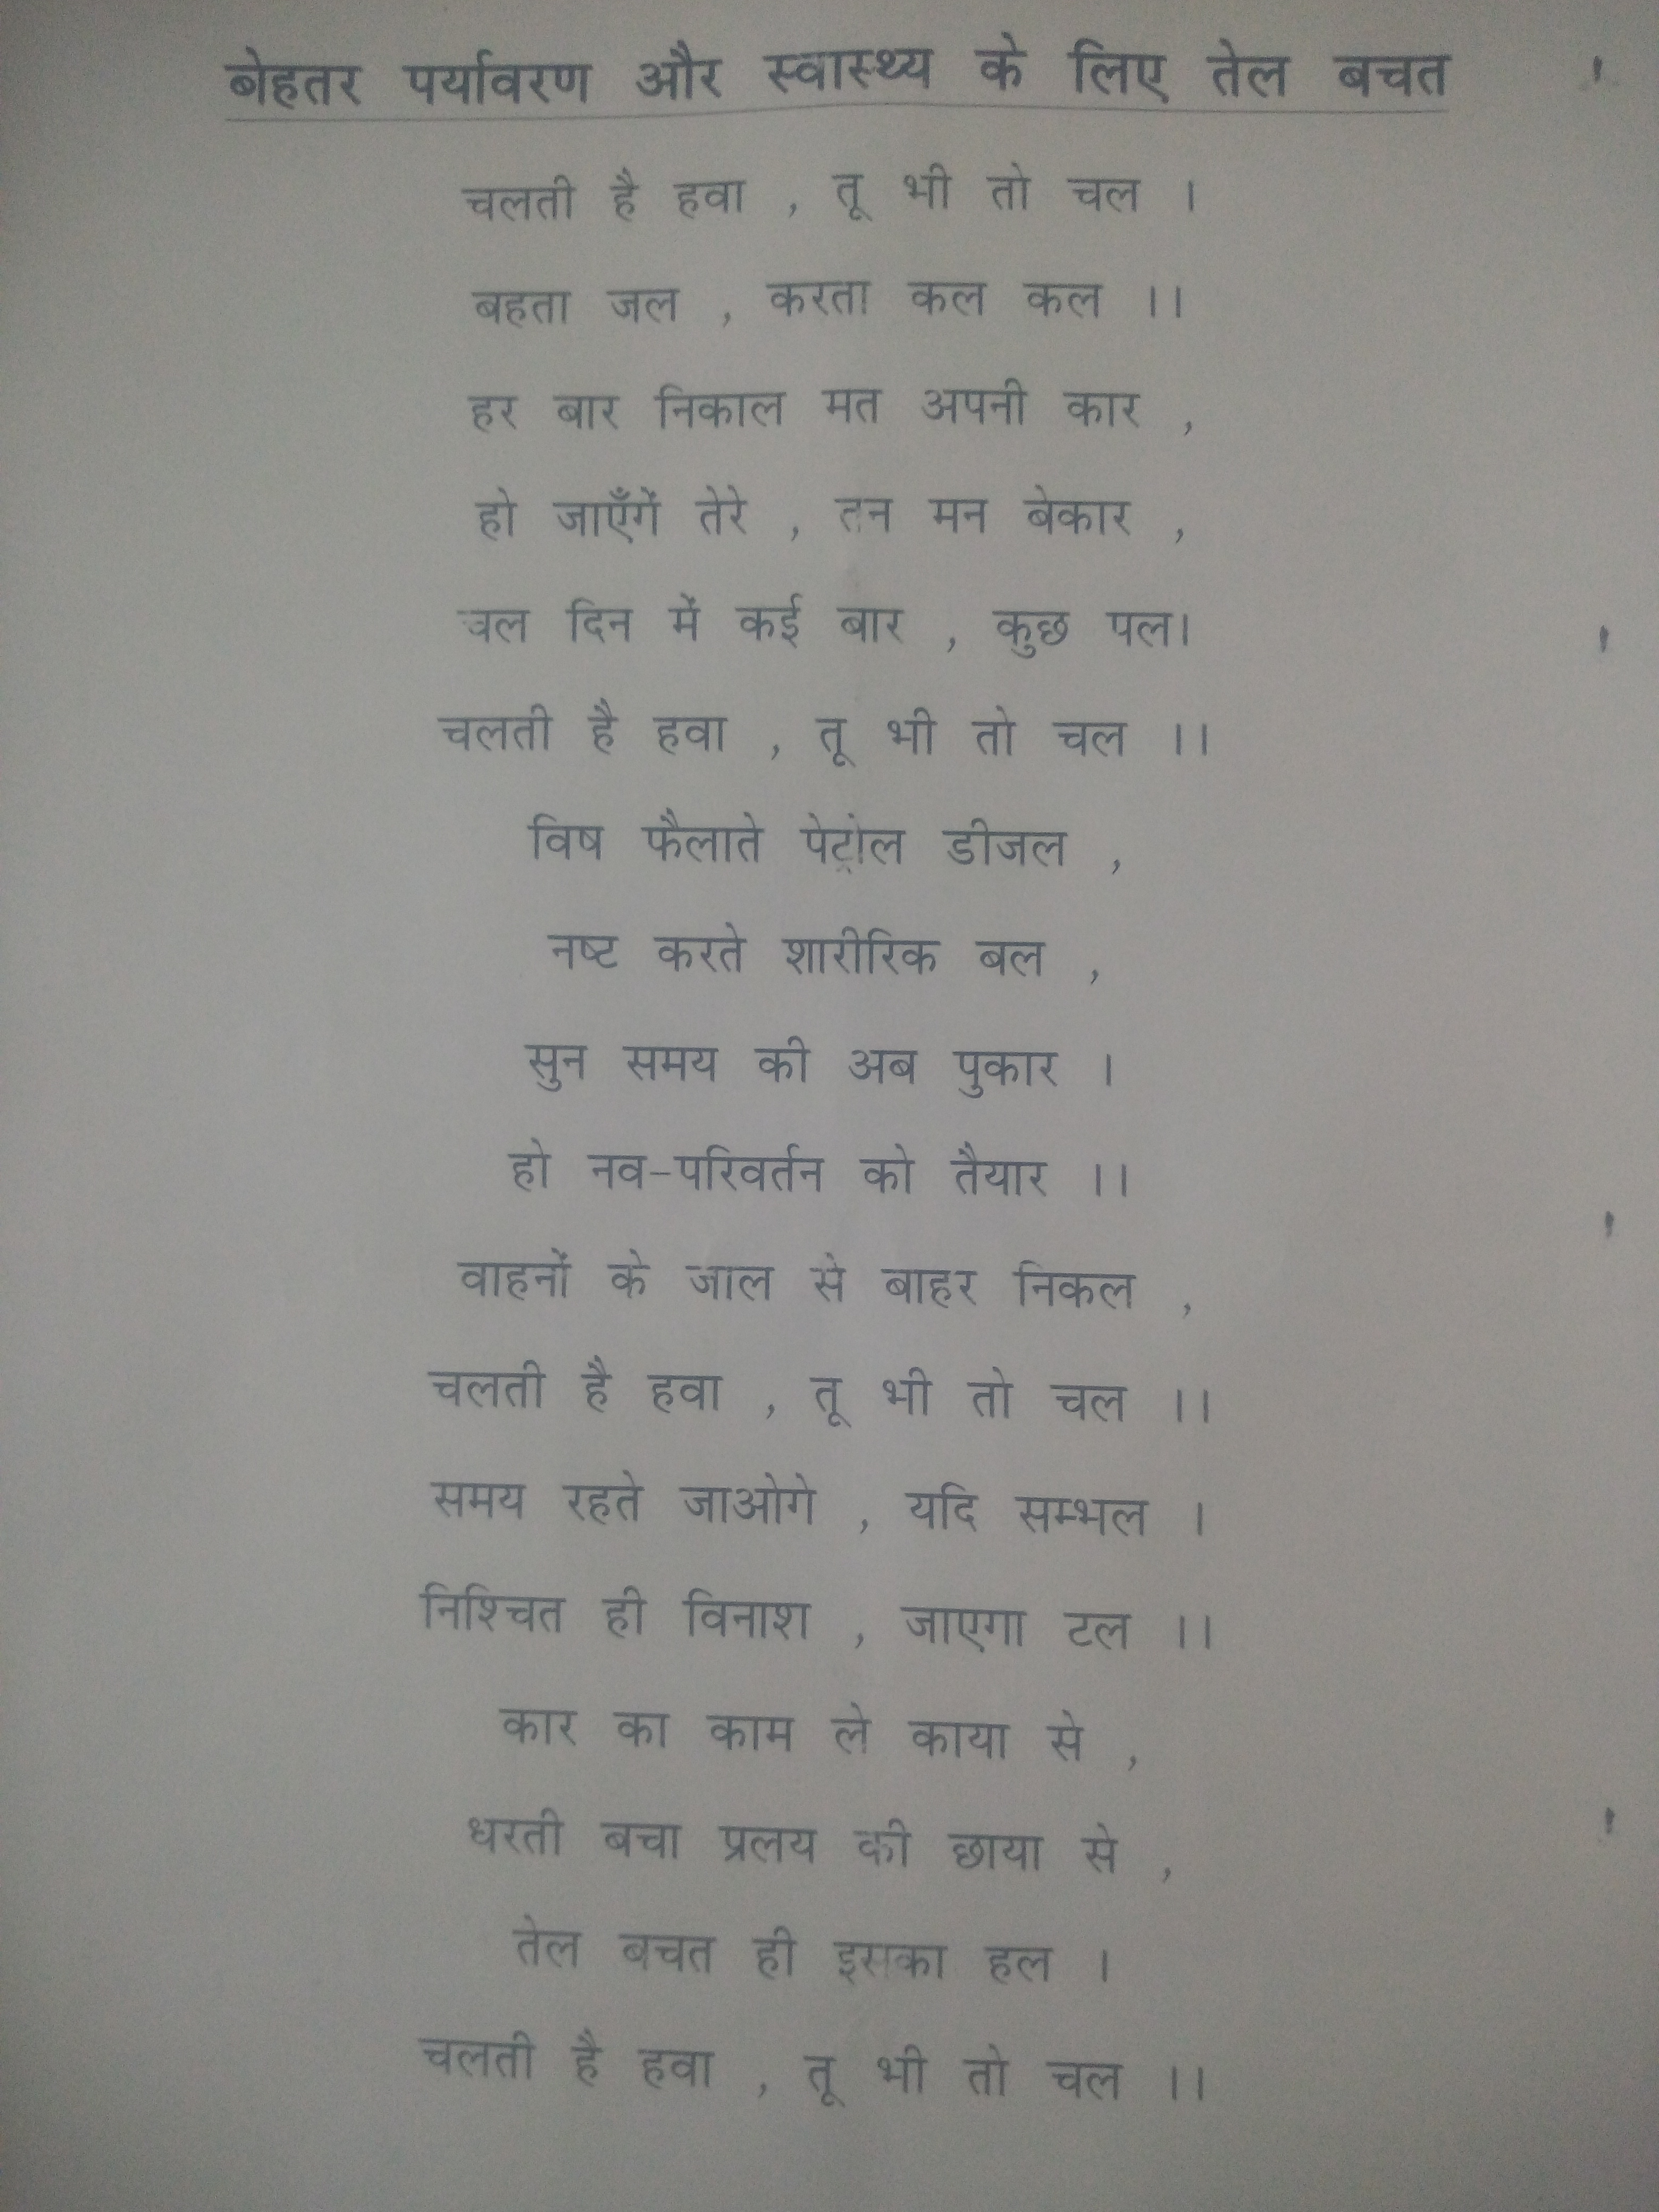 बेहतर पर्यावरण और स्वास्थ्य के लिए तेल बचत
चलती है हवा , तू भी तो चल ।
बहता जल , करता कल कल ।।
हर बार निकाल मत अपनी कार ,
हो जाएँगें तेरे , तन मन बेकार ,
चल दिन में कई बार , कुछ पल।
चलती है हवा , तू भी तो चल ।।
विष फैलाते पेट्रोल डीजल ,
नष्ट करते शारीरिक बल ,
सुन समय की अब पुकार ।
हो नव-परिवर्तन को तैयार ।।
वाहनों के जाल से बाहर निकल ,
चलती है हवा , तू भी तो चल ।।
समय रहते जाओगे , यदि सम्भल ।
निश्चित ही विनाश , जाएगा टल ।।
कार का काम ले काया से ,
धरती बचा प्रलय की छाया से ,
तेल बचत ही इसका हल ।
चलती है हवा , तू भी तो चल ।।